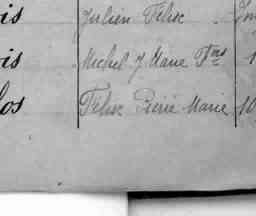 is Julien Félix
is Michel J Marie Fçs 1
los Félix Pierre Marie 10